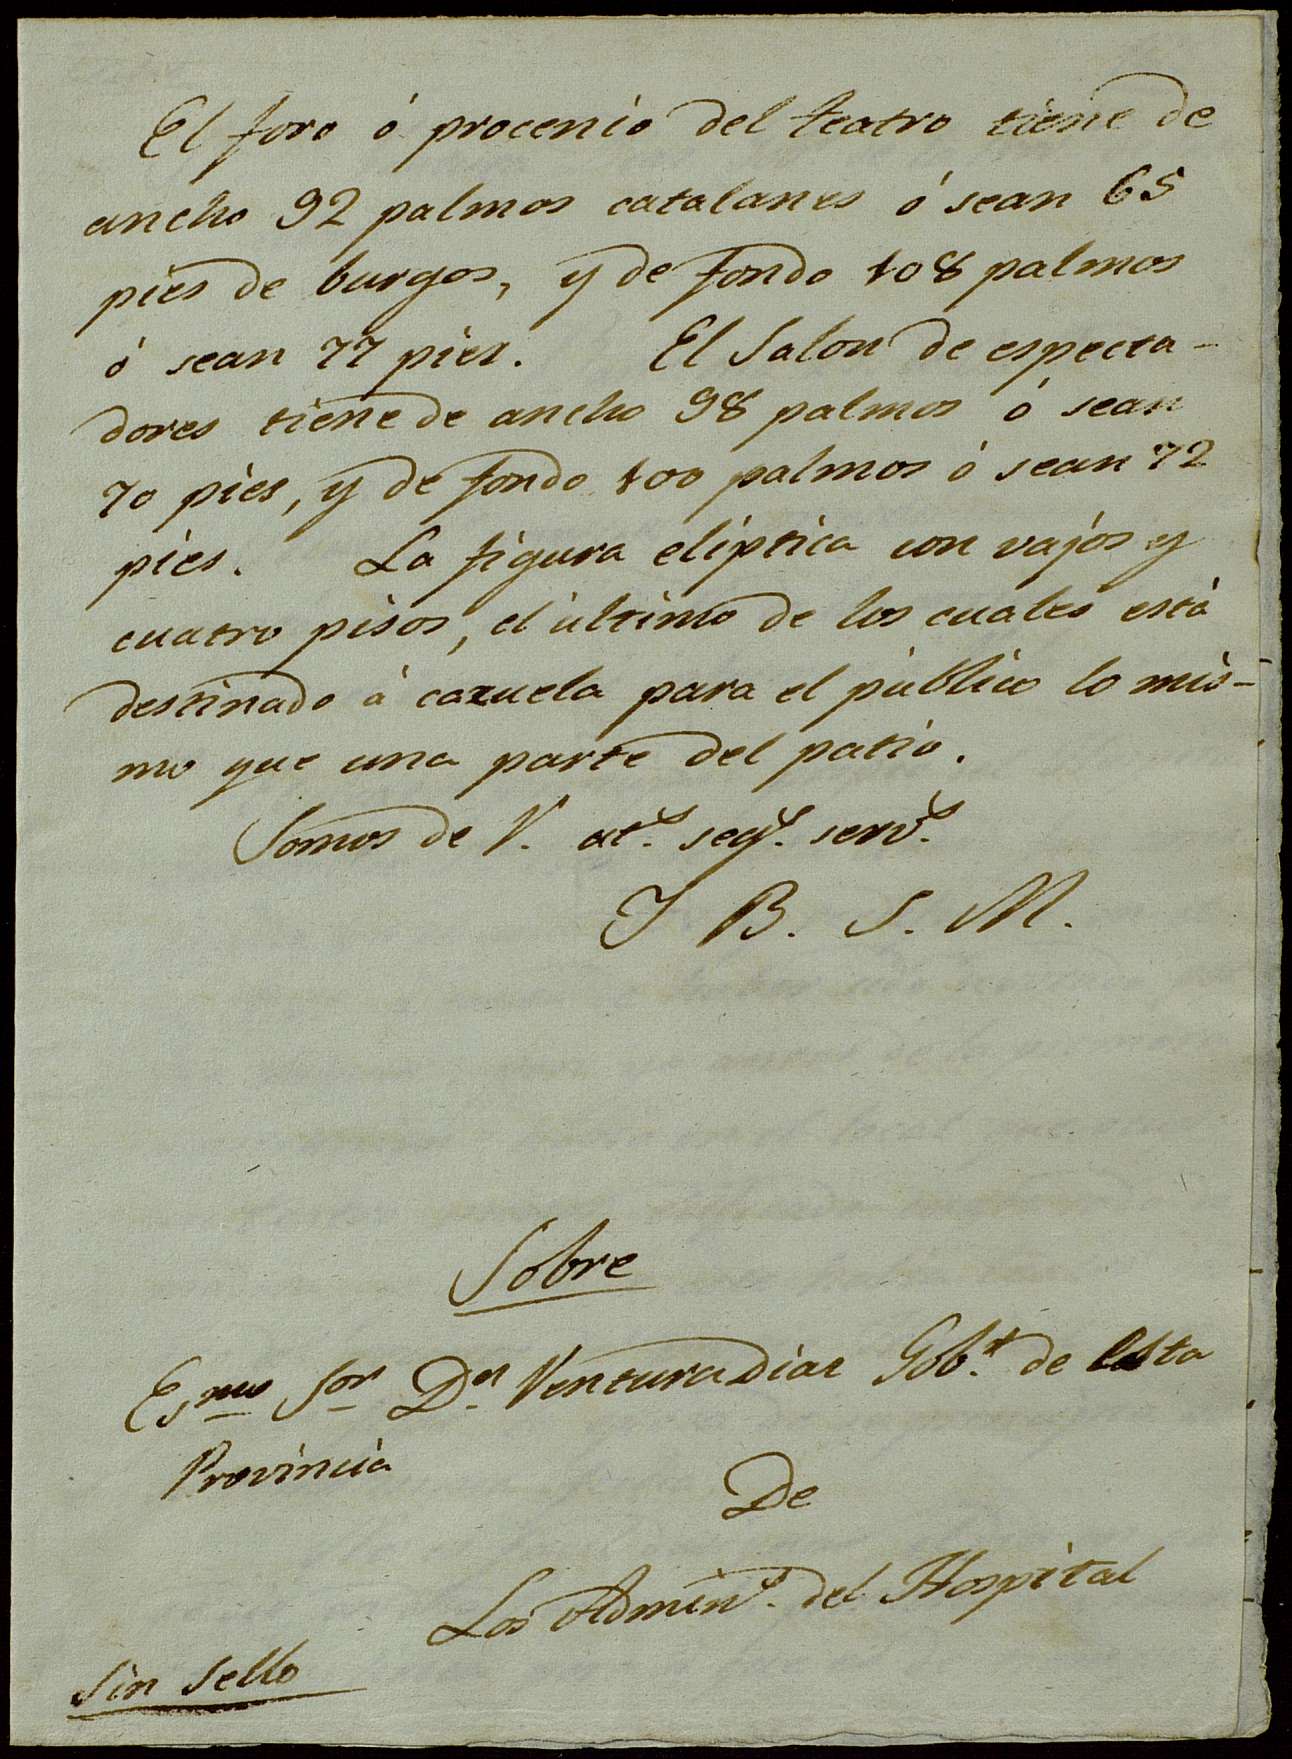 El foro ó procenio del teatro tiene de
ancho 92 palmos catalanes ó sean 65
pies de burgos, y de fondo 108 palmos
ó sean 77 pies. El Salon de especta-
dores tiene de ancho 98 palmos ó sean
70 pies, y de fondo 100 palmos ó sean 72
pies. La figura eliptica con vajos y
cuatro pisos, el ultimo de los cuales está
destinado á cazuela para el público lo mis-
mo que una parte del patio.
Somos de V. at.s seg.s serv.s
Q B. S. M.
Sobre
Esmo Sor Dn Ventura Diaz Gob.r de Esta
Provincia
De
Los Admin.s del Hospital
Sin Sello